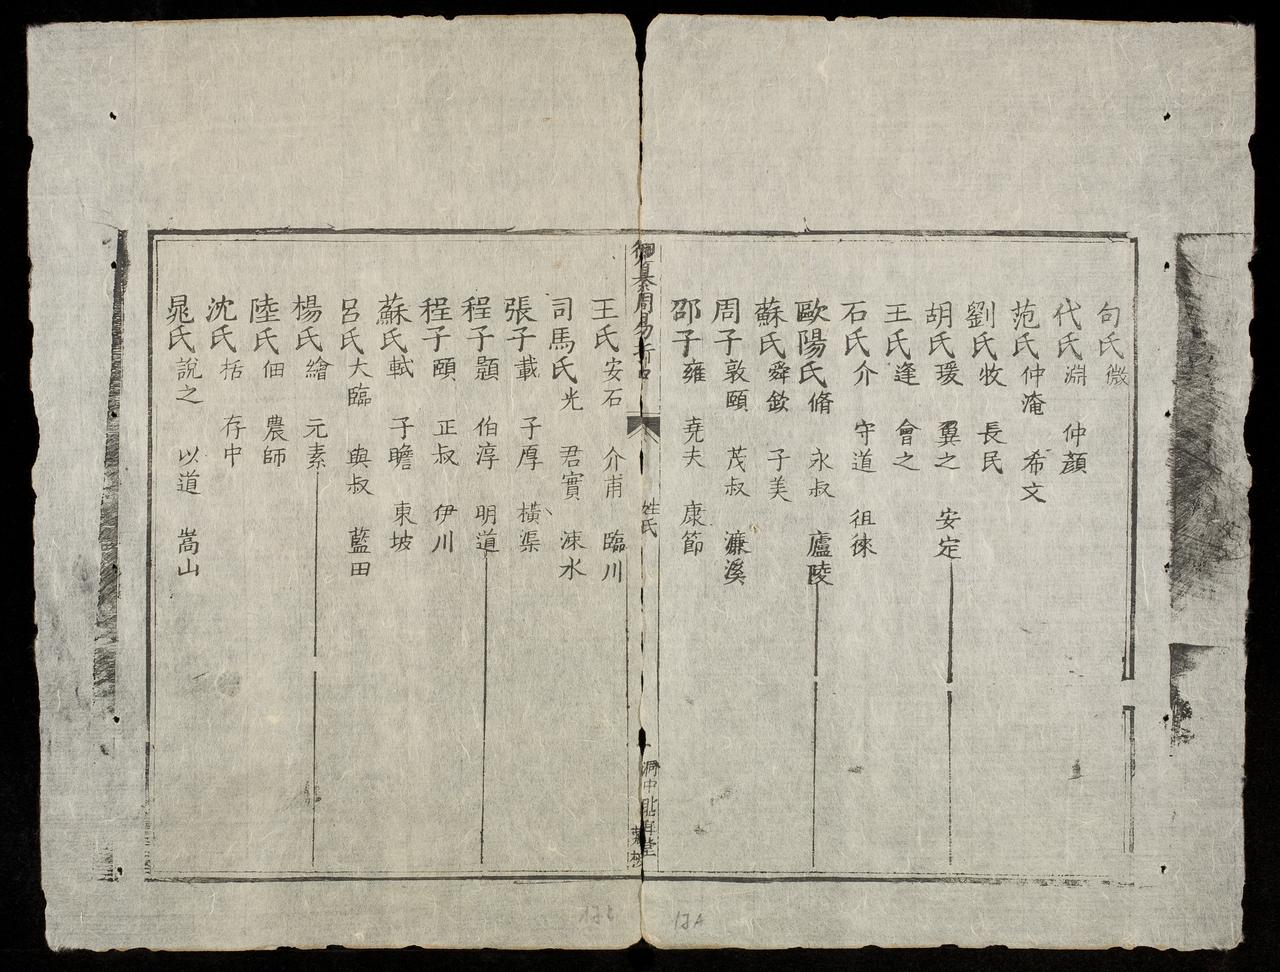 句氏微
代氏淵 仲顏
范氏仲淹 希文
劉氏牧 長民
胡氏瑗 翼之 安定
王氏逢 會之
石氏介 守道 徂徠
歐陽氏脩 永叔 廬陵
蘇氏舜欽 子美
周子敦頤 茂叔 濂溪
邵子雍 堯夫 康節
御纂周易折中
姓氏
王氏安石 介甫 臨川
司馬氏光 君實 涑水
張子載 子厚 橫渠
程子顥 伯淳 明道
程子頤 正叔 伊川
蘇氏軾 子瞻 東坡
呂氏大臨 與叔 藍田
楊氏繪 元素
陸氏佃 農師
沈氏括 存中
晁氏說之 以道 嵩山